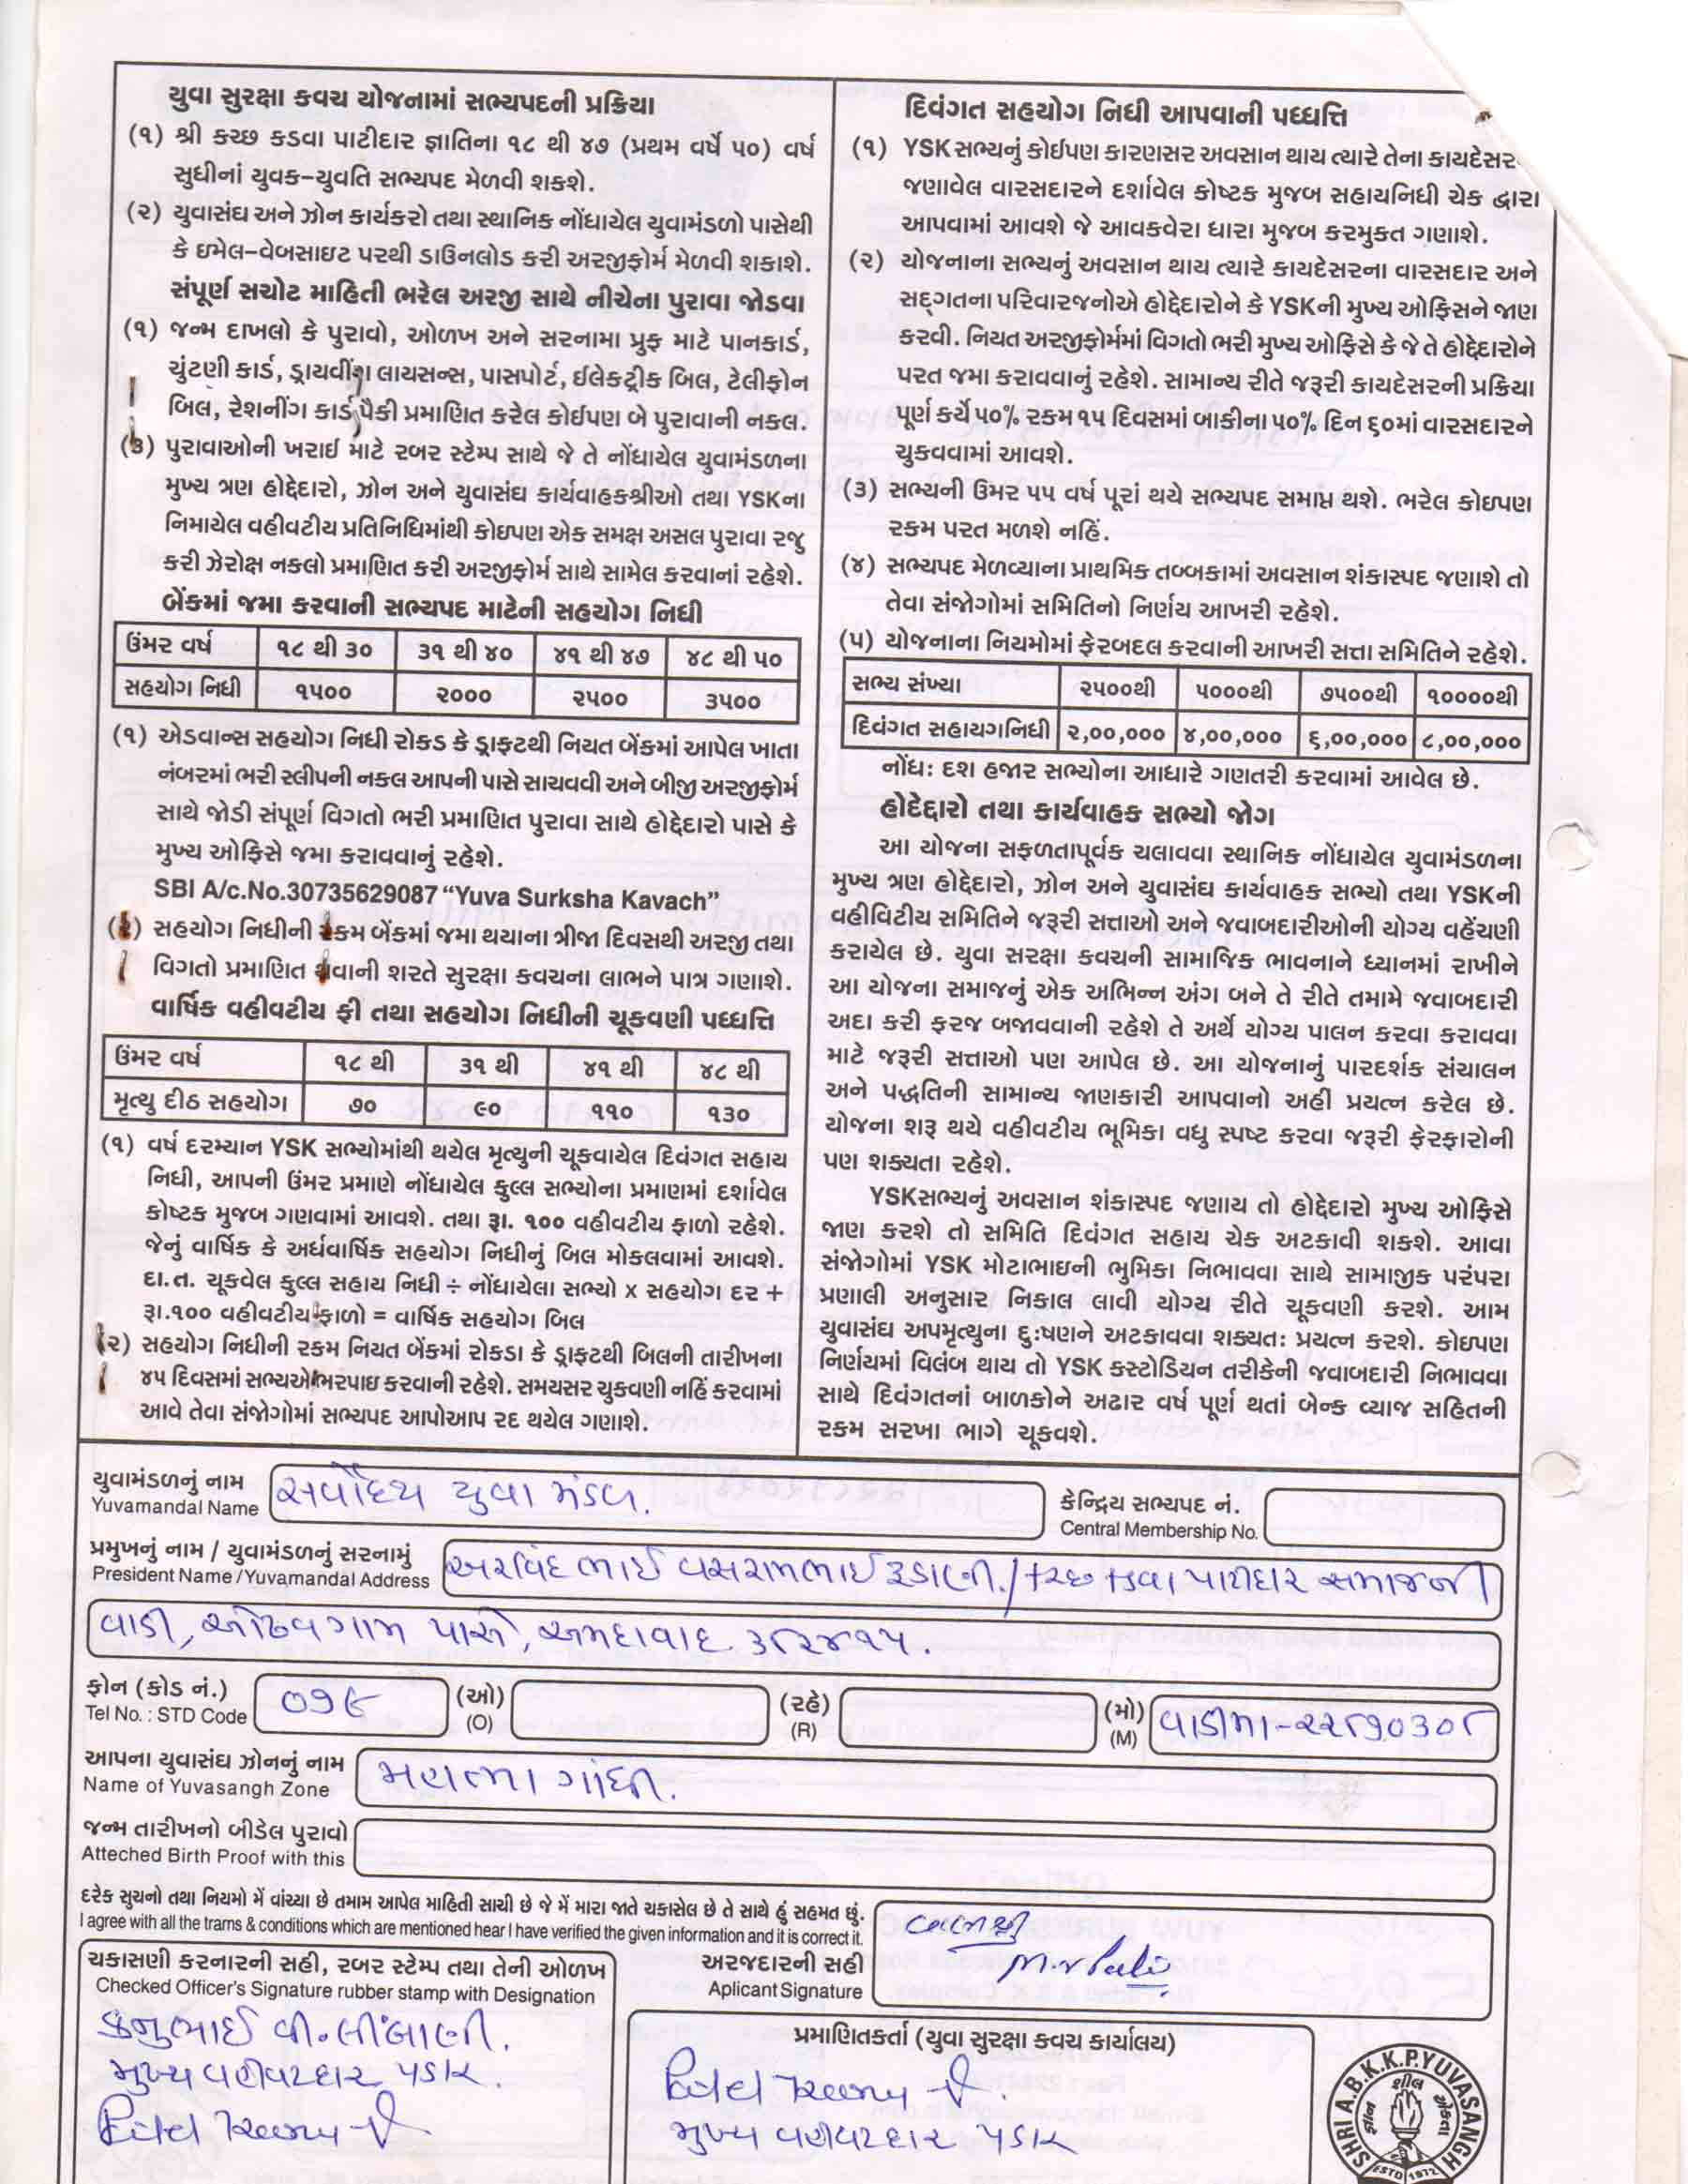 યુવા સુરક્ષા કવચ યોજનામાં સભ્યપદની પ્રક્રિયા
(૧) શ્રી કચ્છ કડવા પાટીદાર જ્ઞાતિના ૧૮ થી ૪૭ (પ્રથમ વર્ષે ૫૦) વર્ષ
સુધીનાં યુવક-યુવતિ સભ્યપદ મેળવી શકશે.
(૨) યુવાસંઘ અને ઝોન કાર્યકરો તથા સ્થાનિક નોંધાયેલ યુવામંડળો પાસેથી
કે ઇમેલ-વેબસાઇટ પરથી ડાઉનલોડ કરી અરજીફોર્મ મેળવી શકાશે.
સંપૂર્ણ સચોટ માહિતી ભરેલ અરજી સાથે નીચેના પુરાવા જોડવા
(૧) જન્મ દાખલો કે પુરાવો, ઓળખ અને સરનામા પ્રુફ માટે પાનકાર્ડ,
ચુંટણી કાર્ડ, ડ્રાયવીંગ લાયસન્સ, પાસપોર્ટ, ઈલેકટ્રીક બિલ, ટેલીફોન
બિલ, રેશનીંગ કાર્ડ પૈકી પ્રમાણિત કરેલ કોઈપણ બે પુરાવાની નકલ.
પુરાવાઓની ખરાઈ માટે રબર સ્ટેમ્પ સાથે જે તે નોંધાયેલ યુવામંડળના
મુખ્ય ત્રણ હોદ્દેદારો, ઝોન અને યુવાસંઘ કાર્યવાહકશ્રીઓ તથા YSKના
નિમાયેલ વહીવટીય પ્રતિનિધિમાંથી કોઇપણ એક સમક્ષ અસલ પુરાવા રજુ
કરી ઝેરોક્ષ નકલો પ્રમાણિત કરી અરજીફોર્મ સાથે સામેલ કરવાનાં રહેશે.
બેંકમાં જમા કરવાની સભ્યપદ માટેની સહયોગ નિધી
ઉંમર વર્ષ ૧૮ થી ૩૦ ૩૧ થી ૪૦ ૪૧ થી ૪૭ ૪૮ થી ૫૦
સહયોગ નિધી ૧૫૦૦ ૨૦૦૦ ૨૫૦૦ ૩૫૦૦
(૧) એડવાન્સ સહયોગ નિધી રોકડ કે ડ્રાફટથી નિયત બેંકમાં આપેલ ખાતા
નંબરમાં ભરી સ્લીપની નકલ આપની પાસે સાચવવી અને બીજી અરજીફોર્મ
સાથે જોડી સંપૂર્ણ વિગતો ભરી પ્રમાણિત પુરાવા સાથે હોદ્દેદારો પાસે કે
મુખ્ય ઓફિસે જમા કરાવવાનું રહેશે.
SBI A/c.No.30735629087 “Yuva Surksha Kavach”
સહયોગ નિધીની રકમ બેંકમાં જમા થયાના ત્રીજા દિવસથી અરજી તથા
વિગતો પ્રમાણિત થવાની શરતે સુરક્ષા કવચના લાભને પાત્ર ગણાશે.
વાર્ષિક વહીવટીય ફી તથા સહયોગ નિધીની ચૂકવણી પધ્ધત્તિ
ઉંમર વર્ષ ૧૮ થી ૩૧ થી ૪૧ થી ૪૮ થી
મૃત્યુ દીઠ સહયોગ ૭૦ ૯૦ ૧૧૦ ૧૩૦
(૧) વર્ષ દરમ્યાન YSK સભ્યોમાંથી થયેલ મૃત્યુની ચૂકવાયેલ દિવંગત સહાય
નિધી, આપની ઉંમર પ્રમાણે નોંધાયેલ કુલ્લ સભ્યોના પ્રમાણમાં દર્શાવેલ
કોષ્ટક મુજબ ગણવામાં આવશે. તથા રૂા. ૧૦૦ વહીવટીય ફાળો રહેશે.
જેનું વાર્ષિક કે અર્ધવાર્ષિક સહયોગ નિધીનું બિલ મોકલવામાં આવશે.
દા.ત. ચૂકવેલ કુલ્લ સહાય નિધી ÷ નોંધાયેલા સભ્યો x સહયોગ દર +
રૂા.૧૦૦ વહીવટીય ફાળો = વાર્ષિક સહયોગ બિલ
(૨) સહયોગ નિધીની રકમ નિયત બેંકમાં રોકડા કે ડ્રાફટથી બિલની તારીખના
૪૫ દિવસમાં સભ્યએ ભરપાઇ કરવાની રહેશે. સમયસર ચુકવણી નહિં કરવામાં
આવે તેવા સંજોગોમાં સભ્યપદ આપોઆપ રદ થયેલ ગણાશે.
દિવંગત સહયોગ નિધી આપવાની પધ્ધત્તિ
(૧) YSK સભ્યનું કોઈપણ કારણસર અવસાન થાય ત્યારે તેના કાયદેસર
જણાવેલ વારસદારને દર્શાવેલ કોષ્ટક મુજબ સહાયનિધી ચેક દ્વારા
આપવામાં આવશે જે આવકવેરા ધારા મુજબ કરમુકત ગણાશે.
(૨) યોજનાના સભ્યનું અવસાન થાય ત્યારે કાયદેસરના વારસદાર અને
સદ્ગતના પરિવારજનોએ હોદ્દેદારોને કે YSKની મુખ્ય ઓફિસને જાણ
કરવી. નિયત અરજીફોર્મમાં વિગતો ભરી મુખ્ય ઓફિસે કે જે તે હોદ્દેદારોને
પરત જમા કરાવવાનું રહેશે. સામાન્ય રીતે જરૂરી કાયદેસરની પ્રક્રિયા
પૂર્ણ કર્યે ૫૦% રકમ ૧૫ દિવસમાં બાકીના ૫૦% દિન ૬૦માં વારસદારને
ચુકવવામાં આવશે.
(૩) સભ્યની ઉંમર ૫૫ વર્ષ પૂરાં થયે સભ્યપદ સમાપ્ત થશે. ભરેલ કોઇપણ
રકમ પરત મળશે નહિં.
(૪) સભ્યપદ મેળવ્યાના પ્રાથમિક તબ્બકામાં અવસાન શંકાસ્પદ જણાશે તો
તેવા સંજોગોમાં સમિતિનો નિર્ણય આખરી રહેશે.
(૫) યોજનાના નિયમોમાં ફેરબદલ કરવાની આખરી સત્તા સમિતિને રહેશે.
સભ્ય સંખ્યા ૨૫૦૦થી ૫૦૦૦થી ૭૫૦૦થી ૧૦૦૦૦થી
દિવંગત સહાયગનિધી ૨,૦૦,૦૦૦ ૪,૦૦,૦૦૦ ૬,૦૦,૦૦૦ ૮,૦૦,૦૦૦
નોંધ: દશ હજાર સભ્યોના આધારે ગણતરી કરવામાં આવેલ છે.
હોદેદ્દારો તથા કાર્યવાહક સભ્યો જોગ
આ યોજના સફળતાપૂર્વક ચલાવવા સ્થાનિક નોંધાયેલ યુવામંડળના
મુખ્ય ત્રણ હોદ્દેદારો, ઝોન અને યુવાસંઘ કાર્યવાહક સભ્યો તથા YSKની
વહીવિટીય સમિતિને જરૂરી સત્તાઓ અને જવાબદારીઓની યોગ્ય વહેંચણી
કરાયેલ છે. યુવા સરક્ષા કવચની સામાજિક ભાવનાને ધ્યાનમાં રાખીને
આ યોજના સમાજનું એક અભિન્ન અંગ બને તે રીતે તમામે જવાબદારી
અદા કરી ફરજ બજાવવાની રહેશે તે અર્થે યોગ્ય પાલન કરવા કરાવવા
માટે જરૂરી સત્તાઓ પણ આપેલ છે. આ યોજનાનું પારદર્શક સંચાલન
અને પદ્ધતિની સામાન્ય જાણકારી આપવાનો અહી પ્રયત્ન કરેલ છે.
યોજના શરૂ થયે વહીવટીય ભૂમિકા વધુ સ્પષ્ટ કરવા જરૂરી ફેરફારોની
પણ શક્યતા રહેશે.
YSKસભ્યનું અવસાન શંકાસ્પદ જણાય તો હોદ્દેદારો મુખ્ય ઓફિસે
જાણ કરશે તો સમિતિ દિવંગત સહાય ચેક અટકાવી શકશે. આવા
સંજોગોમાં YSK મોટાભાઇની ભુમિકા નિભાવવા સાથે સામાજીક પરંપરા
પ્રણાલી અનુસાર નિકાલ લાવી યોગ્ય રીતે ચૂકવણી કરશે. આમ
યુવાસંઘ અપમૃત્યુના દુ:ષણને અટકાવવા શક્યત: પ્રયત્ન કરશે. કોઇપણ
નિર્ણયમાં વિલંબ થાય તો YSK કસ્ટોડિયન તરીકેની જવાબદારી નિભાવવા
સાથે દિવંગતનાં બાળકોને અઢાર વર્ષ પૂર્ણ થતાં બેન્ક વ્યાજ સહિતની
રકમ સરખા ભાગે ચૂકવશે.
યુવામંડળનું નામ સર્વોદય યુવા મંડળ.
Yuvamandal Name
કેન્દ્રિય સભ્યપદ નં.
Central Membership No.
પ્રમુખનું નામ / યુવામંડળનું સરનામું અરવિંદભાઈ વસરામભાઈ રૂડાણી./કચ્છ કડવા પાટીદાર સમાજની
President Name/Yuvamandal Address
વાડી, ઓઢવગામ પાસે, અમદાવાદ. ૩૮૨૪૧૫.
ફોન (કોડ નં.) ૦૭૯ (ઓ) (રહે) (મો) વાડીના-૨૨૮૭૦૩૦૮
Tel No. : STD Code (O) (R) (M)
આપના યુવાસંઘ ઝોનનું નામ મહાત્મા ગાંધી.
Name of Yuvasangh Zone
જન્મ તારીખનો બીડેલ પુરાવો
Atteched Birth Proof with this
દરેક સુચનો તથા નિયમો મેં વાંચ્યા છે તમામ આપેલ માહિતી સાચી છે જે મેં મારા જાતે ચકાસેલ છે તે સાથે હું સહમત છું.
I agree with all the trams & conditions which are mentioned hear I have verified the given information and it is correct it.
અરજદારની સહી
Aplicant Signature
ચકાસણી કરનારની સહી, રબર સ્ટેમ્પ તથા તેની ઓળખ
Checked Officer's Signature rubber stamp with Designation
કનુભાઈ વી. લીંબાણી.
મુખ્ય વહીવટદાર YSK.
પ્રમાણિતકર્તા (યુવા સુરક્ષા કવચ કાર્યાલય)
મુખ્ય વહીવટદાર YSK
SHRI A.B.K.K.P.YUVASANGH
ESTD 1972